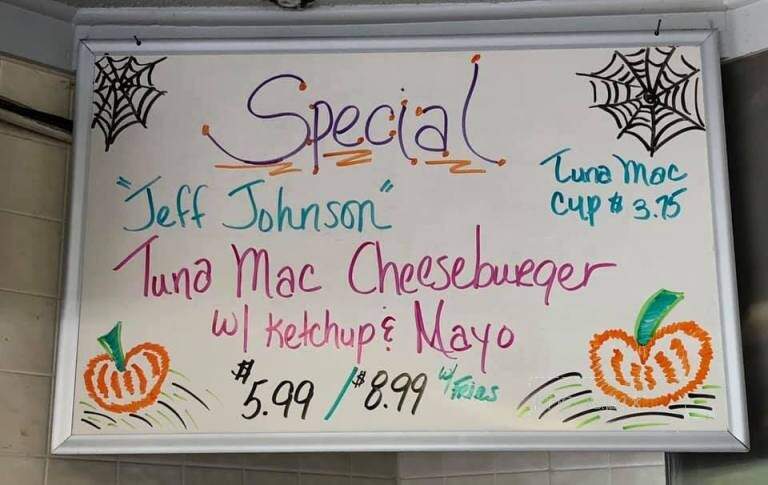 Special
"Jeff Johnson"
Tuna Mac
Cup $ 3.75
Tuna Mac Cheeseburger
w/ Ketchup & Mayo
$5.99 / $8.99 w/ Fries